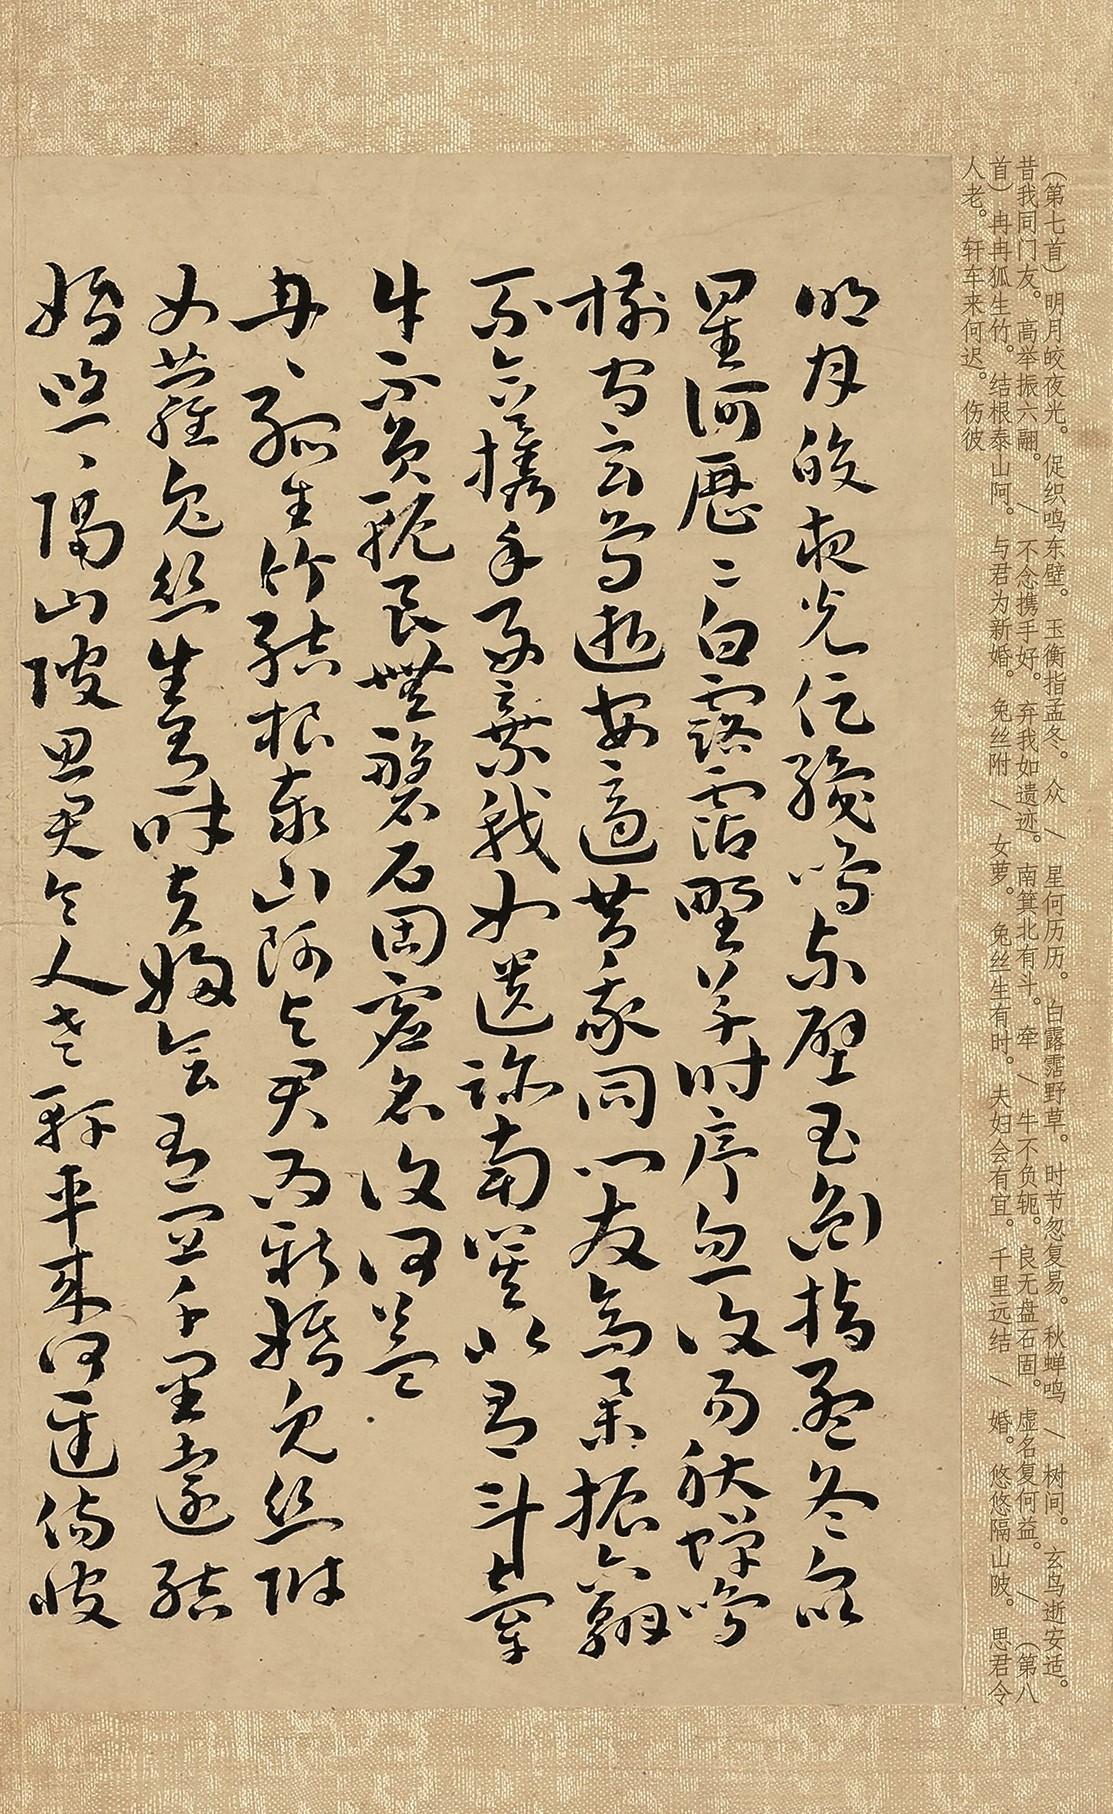 （第七首）明月皎夜光。促织鸣东壁。玉衡指孟冬。众 / 星何历历。白露霑野草。时节忽复易。秋蝉鸣 / 树间。玄鸟逝安适。
昔我同门友。高举振六翮。 / 不念携手好。弃我如遗迹。南箕北有斗。牵 / 牛不负轭。良无盘石固。虚名复何益。 / （第八
首）冉冉狐生竹。结根泰山阿。与君为新婚。兔丝附 / 女萝。兔丝生有时。夫妇会有宜。千里远结 / 婚。悠悠隔山陂。思君令
人老。轩车来何迟。伤彼
明月皎夜光促織鳴東壁玉衡指孟冬眾
星何歷〻白露霑野草時節忽復易秋蟬鳴
樹間玄鳥逝安適昔我同門友高舉振六翮
不念攜手好棄我如遺跡南箕北有斗牽
牛不負軛良無磐石固虛名復何益
冉〻孤生竹結根泰山阿與君為新婚兔絲附
女蘿兔絲生有時夫婦會有宜千里遠結
婚悠〻隔山陂思君令人老軒車來何遲傷彼